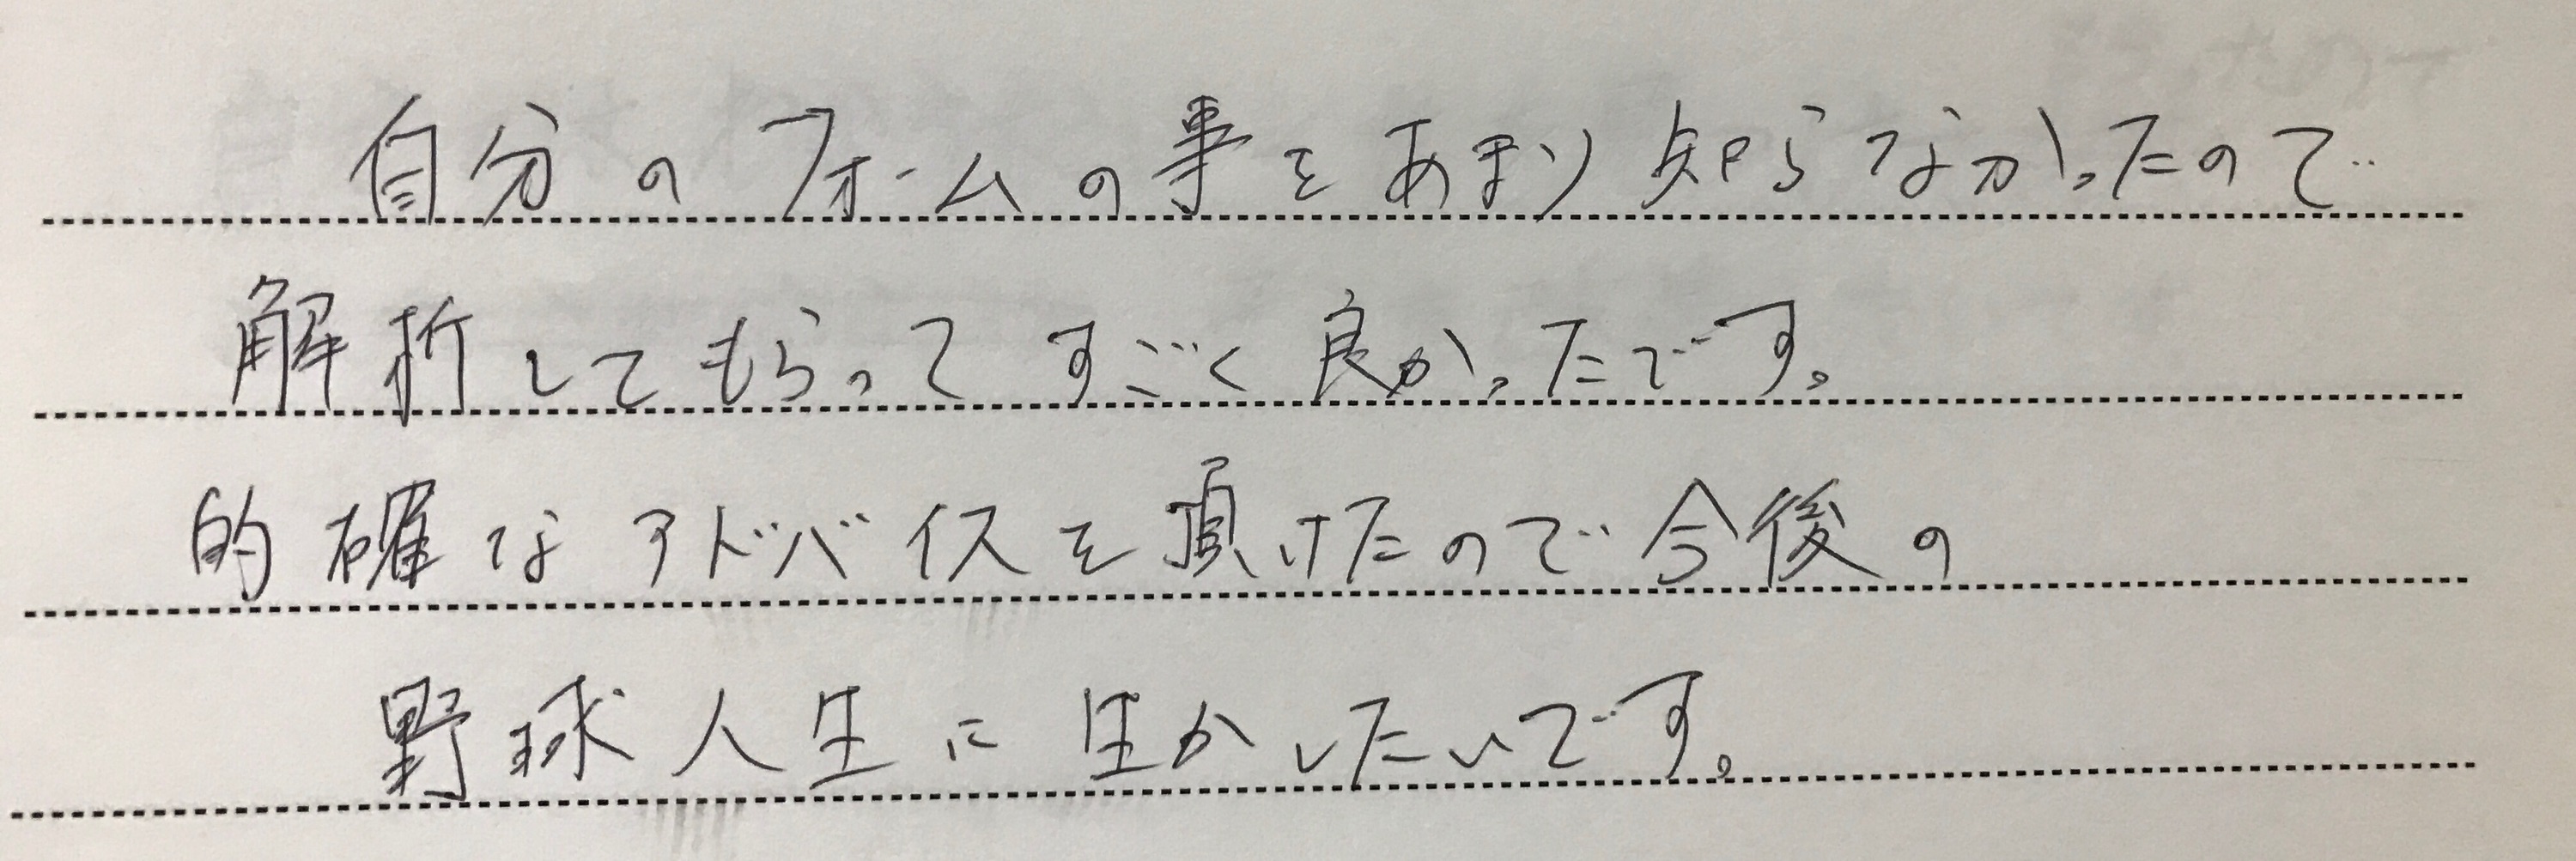 自分のフォームの事をあまり知らなかったので
解析してもらってすごく良かったです。
的確なアドバイスを頂けたので今後の
野球人生に生かしたいです。